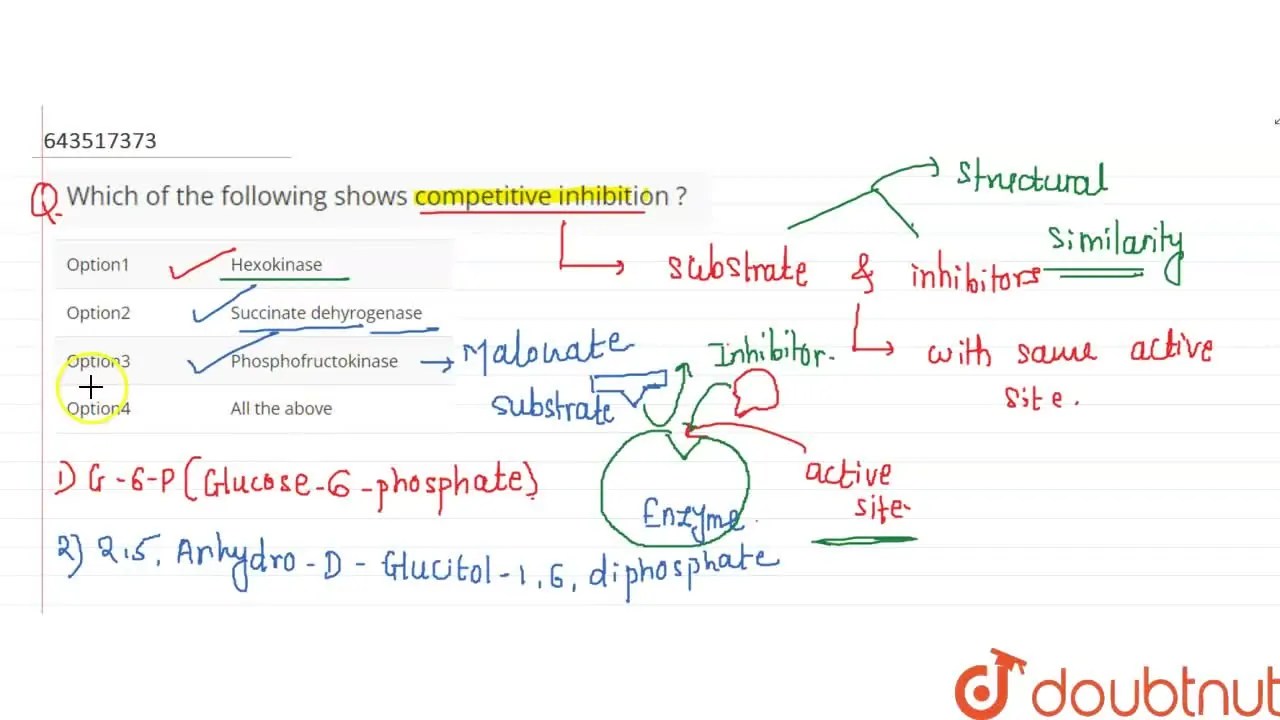 643517373
Q. Which of the following shows competitive inhibition ?
Structural
Similarity
substrate & inhibitors
Option1 Hexokinase
Option2 Succinate dehyrogenase
Option3 Phosphofructokinase
Option4 All the above
Malonate
Inhibitor.
with same active
site.
substrate
active
site
Enzyme
1) G-6-P (Glucose-6-phosphate)
2) 2,5, Anhydro-D-Glucitol-1,6, diphosphate
doubtnut